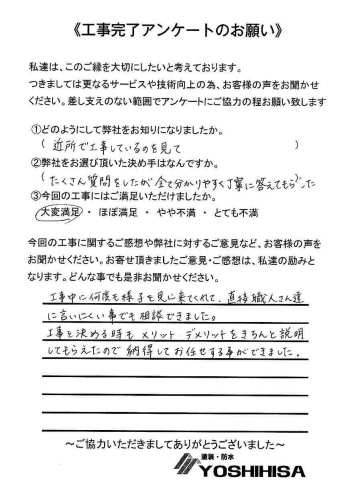 《工事完了アンケートのお願い》
私達は、このご縁を大切にしたいと考えております。
つきましては更なるサービスや技術向上の為、お客様の声をお聞かせ
ください。差し支えのない範囲でアンケートにご協力の程お願い致します
①どのようにして弊社をお知りになりましたか。
( 近所で工事しているのを見て )
②弊社をお選び頂いた決め手はなんですか。
(たくさん質問をしたが全て分かりやすく丁寧に答えてもらった)
③今回の工事にはご満足いただけましたか。
大変満足 ・ ほぼ満足 ・ やや不満 ・ とても不満
今回の工事に関するご感想や弊社に対するご意見など、お客様の声を
お聞かせください。お寄せ頂きましたご意見・ご感想は、私達の励みと
なります。どんな事でも是非お聞かせください。
工事中に何度も様子を見に来てくれて、直接職人さん達
に言いにくい事でも相談できました。
工事を決める時も メリット デメリットをきちんと説明
してもらえたので納得してお任せする事ができました。
～ご協力いただきましてありがとうございました～
塗装・防水
YOSHIHISA